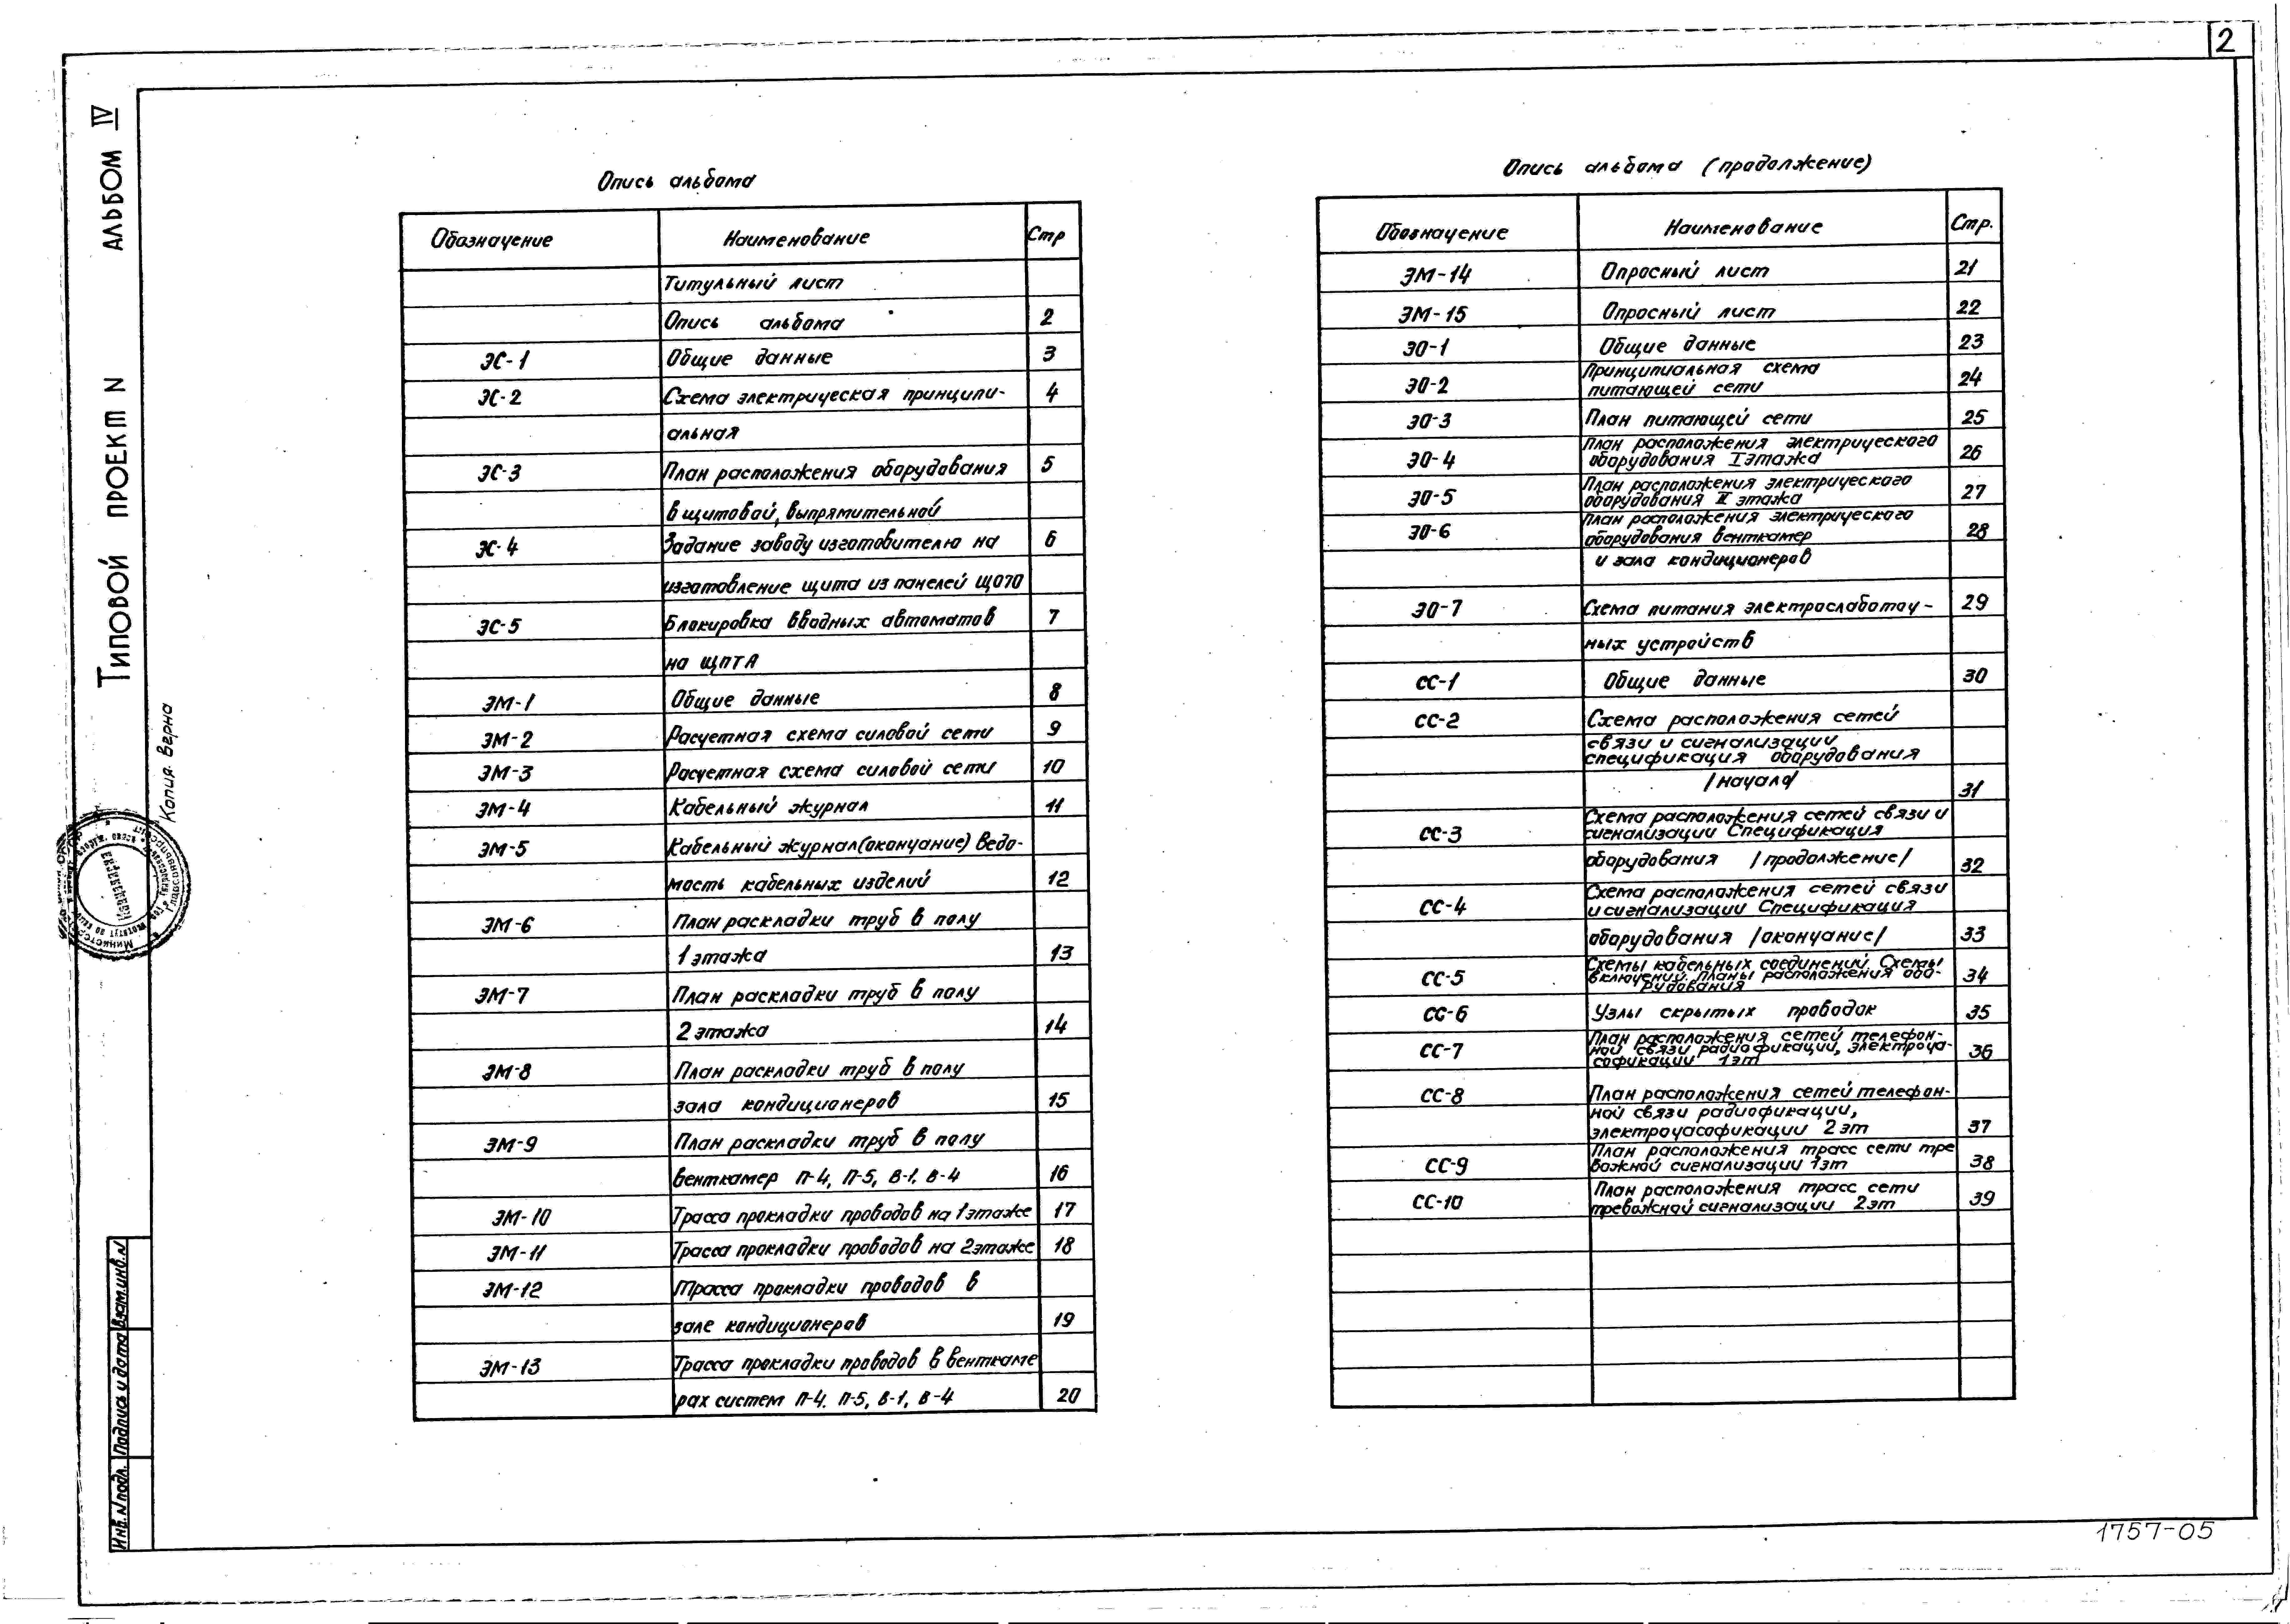 2
АЛЬБОМ IV
ТИПОВОЙ ПРОЕКТ N
Копия верна
Взам.инв.N
Подпись и дата
Инв.N подл.
Опись альбома
Обозначение Наименование Стр
Титульный лист
Опись альбома 2
ЭС-1 Общие данные 3
ЭС-2 Схема электрическая принципи- 4
альная
ЭС-3 План расположения оборудования 5
в щитовой, выпрямительной
ЭС-4 Задание заводу изготовителю на 6
изготовление щита из панелей ЩО70
ЭС-5 Блокировка вводных автоматов 7
на ЩПТА
ЭМ-1 Общие данные 8
ЭМ-2 Расчетная схема силовой сети 9
ЭМ-3 Расчетная схема силовой сети 10
ЭМ-4 Кабельный журнал 11
ЭМ-5 Кабельный журнал(окончание) Ведо-
мость кабельных изделий 12
ЭМ-6 План раскладки труб в полу
1 этажа 13
ЭМ-7 План раскладки труб в полу
2 этажа 14
ЭМ-8 План раскладки труб в полу
зала кондиционеров 15
ЭМ-9 План раскладки труб в полу
венткамер П-4, П-5, В-1, В-4 16
ЭМ-10 Трасса прокладки проводов на 1 этаже 17
ЭМ-11 Трасса прокладки проводов на 2 этаже 18
ЭМ-12 Трасса прокладки проводов в
зале кондиционеров 19
ЭМ-13 Трасса прокладки проводов в венткаме
рах систем П-4. П-5, В-1, В-4 20
Опись альбома (продолжение)
Обозначение Наименование Стр.
ЭМ-14 Опросный лист 21
ЭМ-15 Опросный лист 22
ЭО-1 Общие данные 23
ЭО-2 Принципиальная схема
питающей сети 24
ЭО-3 План питающей сети 25
ЭО-4 План расположения электрического
оборудования I этажа 26
ЭО-5 План расположения электрического
оборудования II этажа 27
ЭО-6 План расположения электрического
оборудования венткамер 28
и зала кондиционеров
ЭО-7 Схема питания электрослаботоч- 29
ных устройств
СС-1 Общие данные 30
СС-2 Схема расположения сетей
связи и сигнализации
спецификация оборудования
/начало/ 31
СС-3 Схема расположения сетей связи и
сигнализации Спецификация
оборудования /продолжение/ 32
СС-4 Схема расположения сетей связи
и сигнализации Спецификация
оборудования /окончание/ 33
СС-5 Схемы кабельных соединений. Схемы
включений. планы расположения обо- 34
рудования
СС-6 Узлы скрытых проводок 35
СС-7 План расположения сетей телефон-
ной связи радиофикации, электроча- 36
софикации 1эт
СС-8 План расположения сетей телефон-
ной связи радиофикации,
электрочасофикации 2 эт 37
СС-9 План расположения трасс сети тре
вожной сигнализации 1эт 38
СС-10 План расположения трасс сети
тревожной сигнализации 2эт 39
1757-05